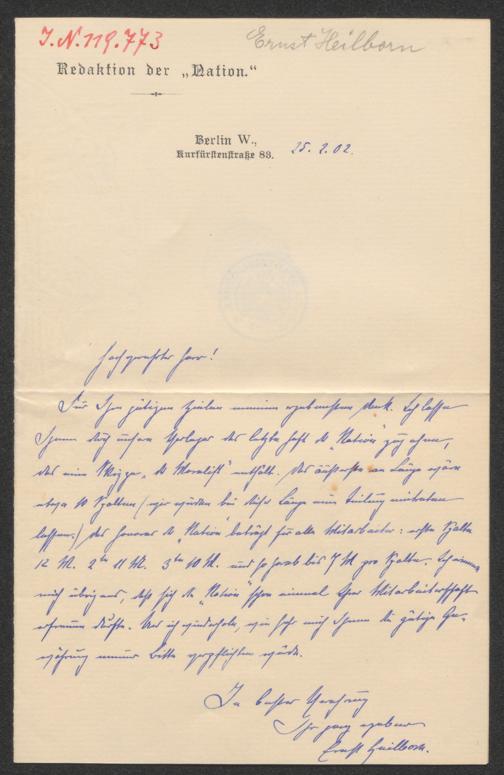 I.N. 119.773
Ernst Heilborn
Redaktion der „Nation.“
Berlin W.,
Kurfürstenstraße 83.
25. 2. 02.
Hochgeehrter Herr!
Für Ihre gütigen Zeilen meinen ergebensten Dank. Ich lasse
Ihnen durch unsern Verleger das letzte Heft d. „Nation“ zugehen,
das eine Skizze „D. Moralist“ enthält. Das äußerste an Länge wäre
etwa 10 Spalten (wir würden bei dieser Länge eine Teilung eintreten
lassen.) Das Honorar d. „Nation“ beträgt für alle Mitarbeiter: erste Spalte
12 M. 2te 11 M. 3te 10 M. und so herab bis 7 M pro Spalte. Ich
mich übrigens, daß sich die „Nation“ schon einmal Ihrer Mitarbeiterschaft
erfreuen durfte. Und ich wiederhole, wie sehr mich Ihnen die gütige Ge-
währung meiner Bitte verpflichten würde.
In bester Verehrung
Ihr ganz ergebener
Ernst Heilborn.